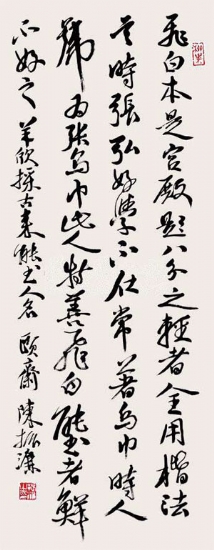 飛白本是宮殿題八分之輕者全用楷法
吳時張弘好學不仕常著烏巾時人
號為張烏巾此人特善飛白能者鮮
不好之 羊欣採古來能書人名 頤齋 陳振濂